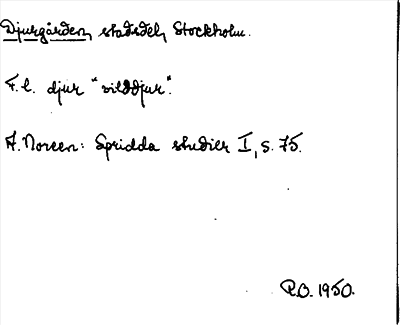 Djurgården, stadsdel, Stockholm.
F.l. djur "vilddjur".
A. Noreen: Spridda studier I, s. 75.
R.O. 1950.